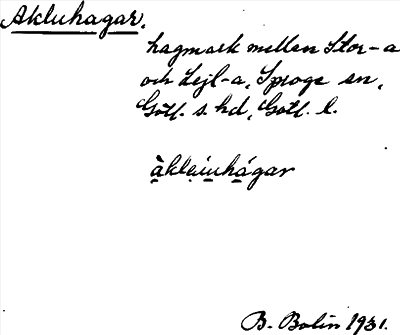 Akluhagar.
hagmark mellan Stor-a
och Lejl-a, Sproge sn,
Gotl. s. hd, Gotl. l.
àklạiuhágar
B. Bolin 1931.